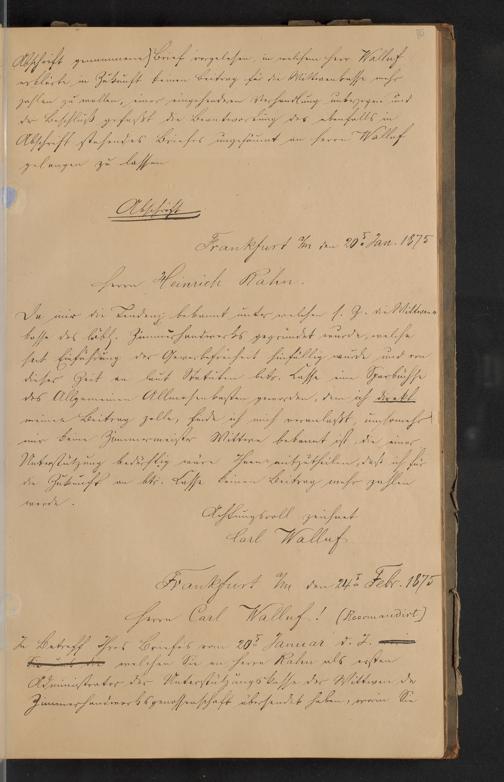 Abschrift genommene) Brief vorgelesen, in welchem Herr Walluf
erklärte in Zukunft keinen Beitrag für die Wittwenkasse mehr
zahlen zu wollen, einer eingehenden Verhandlung unterzogen und
der Beschluß gefaßt die Beantwortung des ebenfalls in
Abschrift stehenden Briefes ungesäumt an Herrn Walluf
gelangen zu lassen
Abschrift
Frankfurt a/M den 20t Jan. 1875
Herrn Heinrich Kahn.
Da mir die Tendenz bekannt unter welchen s. Z. die Wittwen
kasse des löbl. Zimmerhandwerks gegründet wurde, welche
seit Einführung der Gewerbefreiheit hinfällig wurde und von
dieser Zeit an laut Statuten btr. Casse eine Sparbüchse
des Allgemeinen Almosenkasten geworden, dem ich direkt
meinen Beitrag zolle, finde ich mich veranlaßt, umsomehr
mir keine Zimmermeister Wittwe bekannt ist die einer
Unterstützung bedürftig wäre Ihnen mitzutheilen, daß ich für
die Zukunft an btr. Casse keinen Beitrag mehr zahlen
werde.
Achtungsvoll zeichnet
Carl Walluf.
Frankfurt a/M den 24t Febr. 1875
Herrn Carl Walluf! (Recomandirt)
In Betreff Ihres Briefes vom 20t Januar d. J.
welchen Sie an Herrn Kahn als ersten
Administrator der Unterstützungskasse der Wittwen der
Zimmerhandwerksgenossenschaft übersendet haben, worin Sie